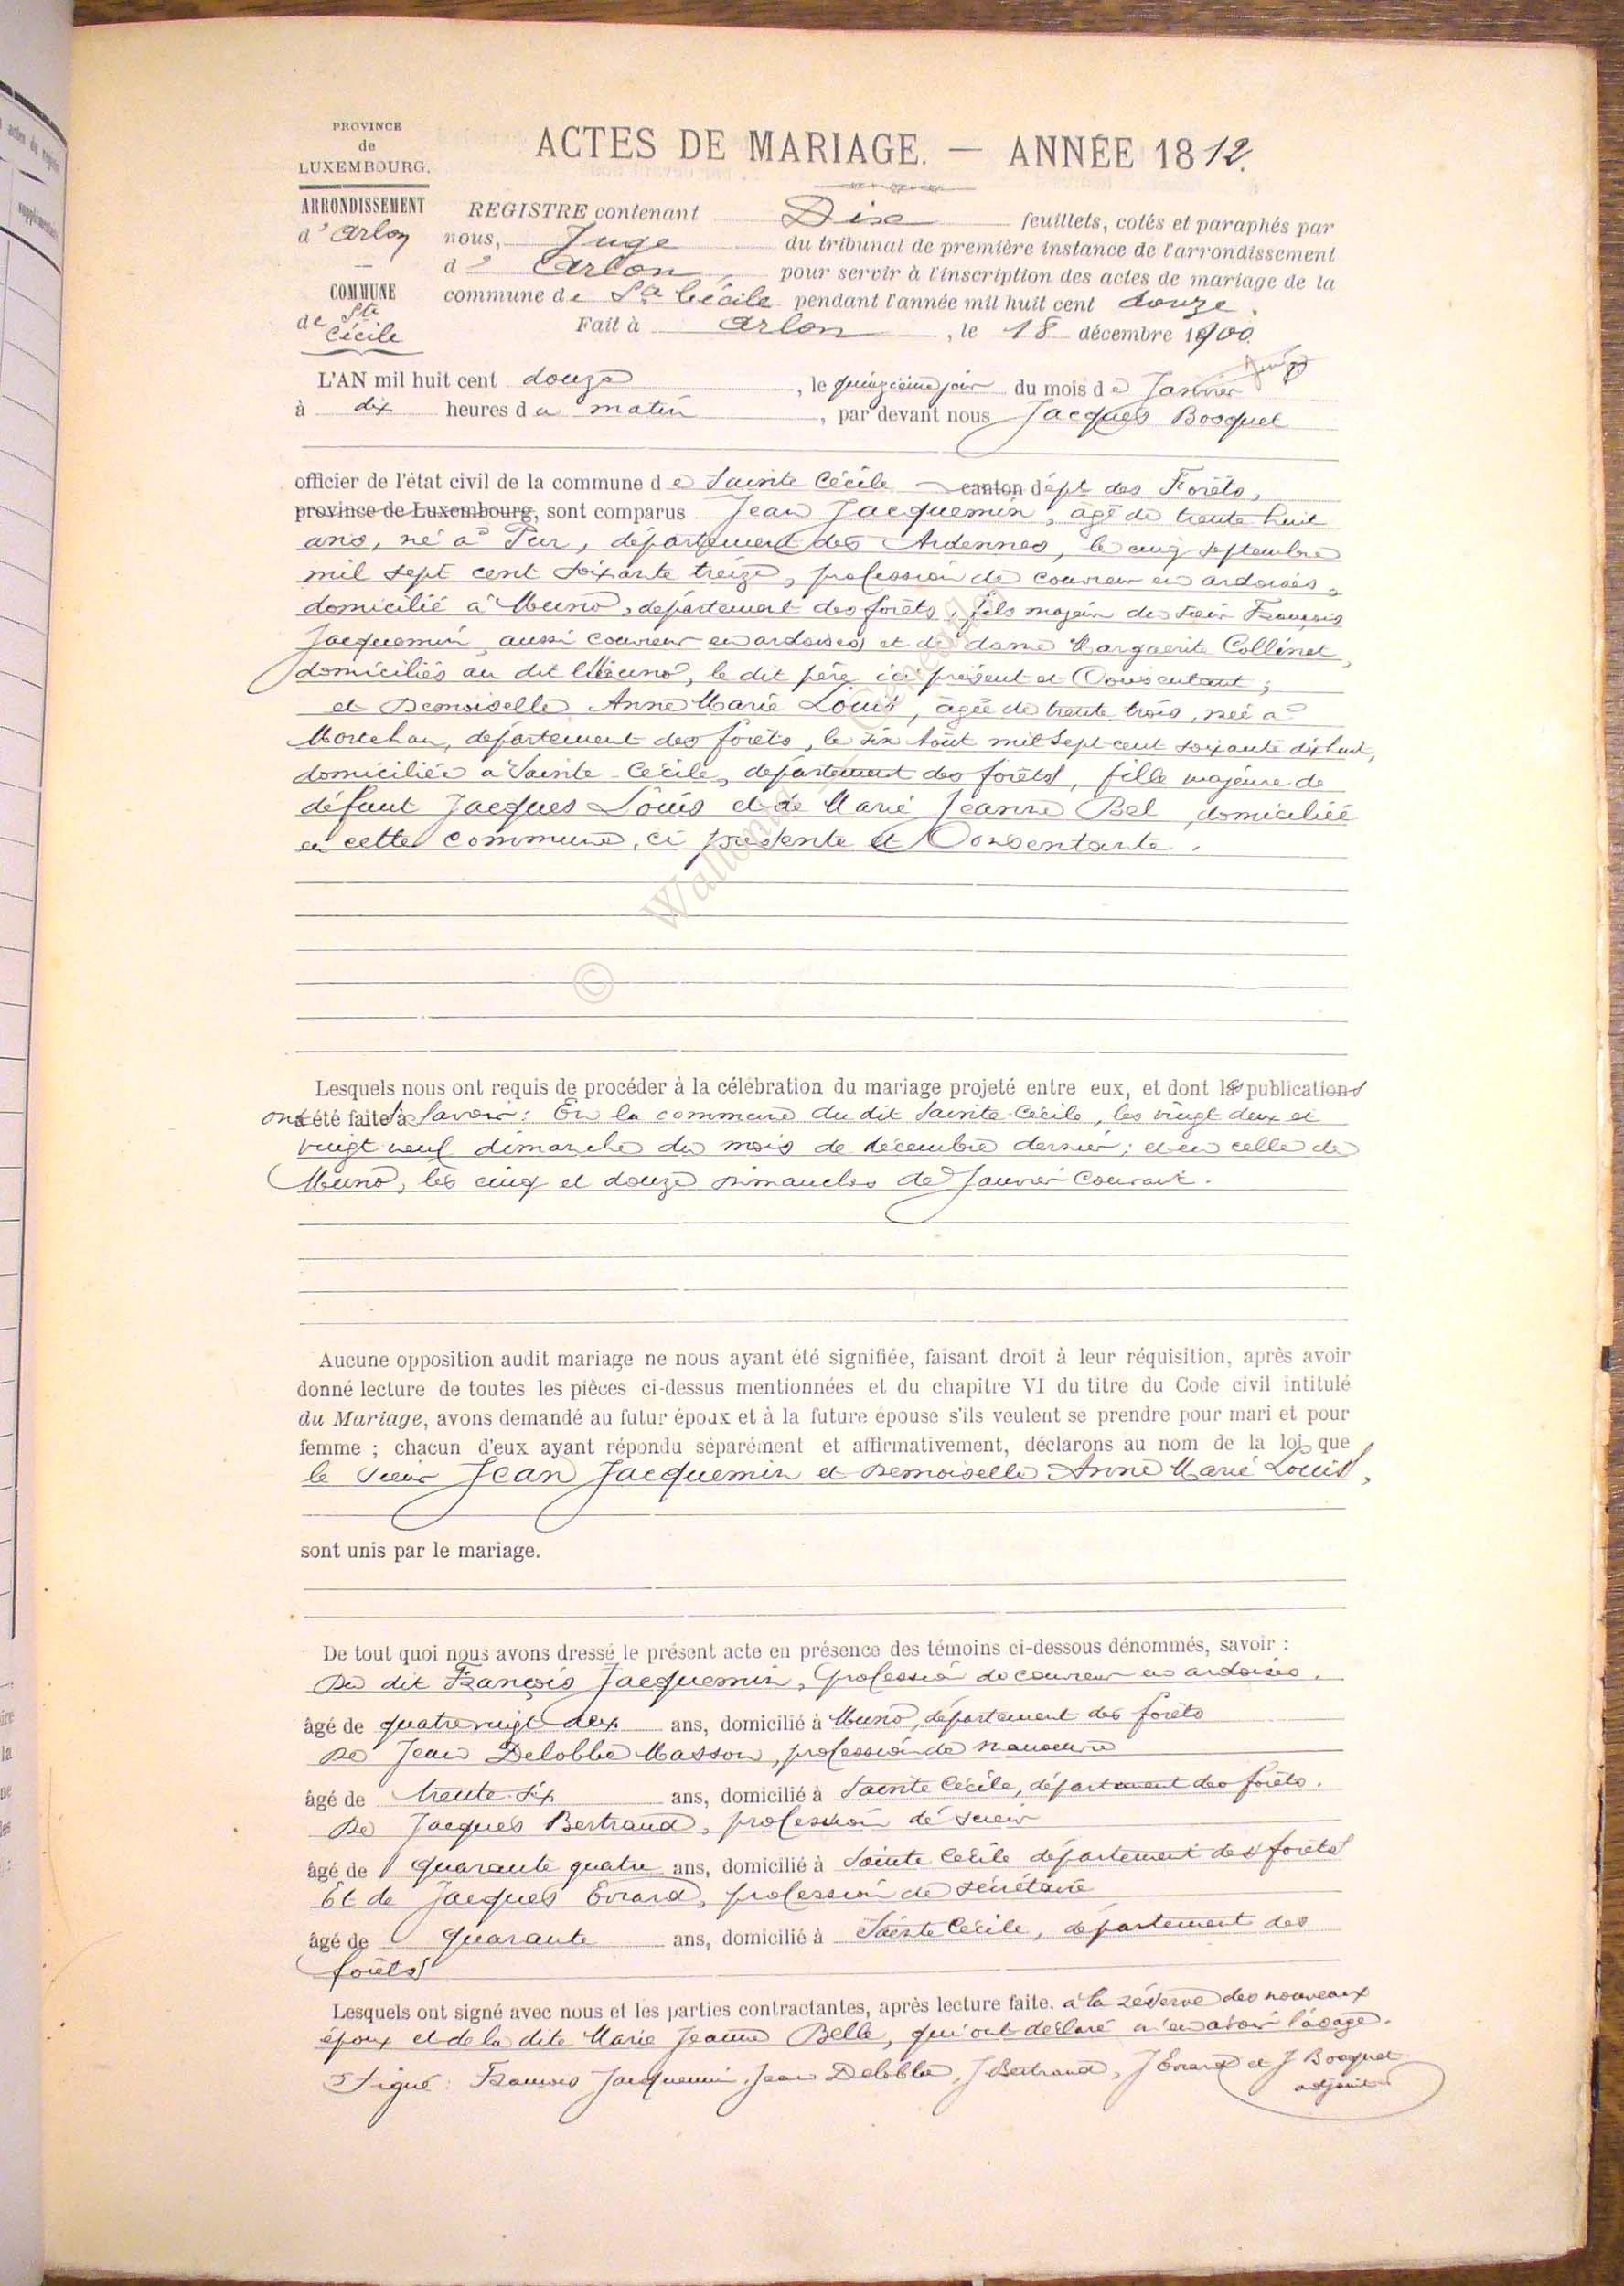 PROVINCE
de
LUXEMBOURG.
ARRONDISSEMENT
d'Arlon
COMMUNE
de Ste
Cécile
ACTES DE MARIAGE. — ANNÉE 1812.
REGISTRE contenant Dix feuillets, cotés et paraphés par
nous, Juge du tribunal de première instance de l'arrondissement
d'Arlon, pour servir à l'inscription des actes de mariage de la
commune de Ste Cécile pendant l'année mil huit cent douze.
Fait à Arlon, le 18 décembre 1900.
L'AN mil huit cent douze, le quinzième jour du mois de Janvier
à dix heures du matin, par devant nous Jacques Bosquet
officier de l'état civil de la commune de Sainte Cécile canton dépt des Forêts,
province de Luxembourg, sont comparus Jean Jacquemin, âgé de trente huit
ans, né à Pur, département des Ardennes, le cinq septembre
mil sept cent soixante treize, profession de couvreur en ardoises,
domicilié à Muno, département des forêts, fils majeur du sieur François
Jacquemin, aussi couvreur en ardoises et de dame Marguerite Collinet,
domiciliés au dit Muno, le dit père ici présent et Consentant;
et Demoiselle Anne Marie Louis, âgée de trente trois, née à
Mortehan, département des forêts, le six Août mil sept cent soixante dix huit,
domiciliée à Sainte-Cécile, département des forêts, fille majeure de
défunt Jacques Louis et de Marie Jeanne Bel, domiciliée
en cette commune, ci présente et Consentante.
© Wallonia
Lesquels nous ont requis de procéder à la célébration du mariage projeté entre eux, et dont les publications
ont été faites à Savoir: En la commune du dit Sainte-Cécile, les vingt deux et
vingt neuf dimanche du mois de décembre dernier; et en celle de
Muno, les cinq et douze dimanches de Janvier Courant.
Aucune opposition audit mariage ne nous ayant été signifiée, faisant droit à leur réquisition, après avoir
donné lecture de toutes les pièces ci-dessus mentionnées et du chapitre VI du titre du Code civil intitulé
du Mariage, avons demandé au futur époux et à la future épouse s'ils veulent se prendre pour mari et pour
femme ; chacun d'eux ayant répondu séparément et affirmativement, déclarons au nom de la loi que
le sieur Jean Jacquemin et Demoiselle Anne Marie Louis,
sont unis par le mariage.
De tout quoi nous avons dressé le présent acte en présence des témoins ci-dessous dénommés, savoir :
Du dit François Jacquemin, profession de couvreur en ardoises.
âgé de quatre vingt deux ans, domicilié à Muno, département des forêts
De Jean Delobbe Masson, profession de manoeuvre
âgé de trente-six ans, domicilié à Sainte Cécile, département des forêts.
De Jacques Bertrand, profession de
âgé de quarante quatre ans, domicilié à Sainte Cécile département des forêts
Et de Jacques Evrard, profession de secrétaire
âgé de quarante ans, domicilié à Sainte Cécile, département des
forêts
Lesquels ont signé avec nous et les parties contractantes, après lecture faite. à la réserve des nouveaux
époux et de la dite Marie Jeanne Belle, qui ont déclaré n'en avoir l'usage.
Signé: François Jacquemin, Jean Delobbe, J. Bertrand, J Evrard et J Bosquet
adjoint